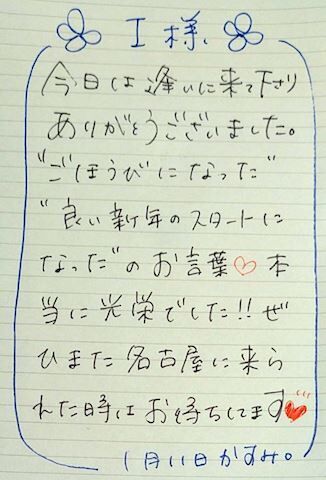 I様
今日は逢いに来て下さり
ありがとうございました。
"ごほうびになった"
"良い新年のスタートに
なった"のお言葉♡本
当に光栄でした!!ぜ
ひまた名古屋に来ら
れた時はお待ちしてます♥
1月11日かすみ。